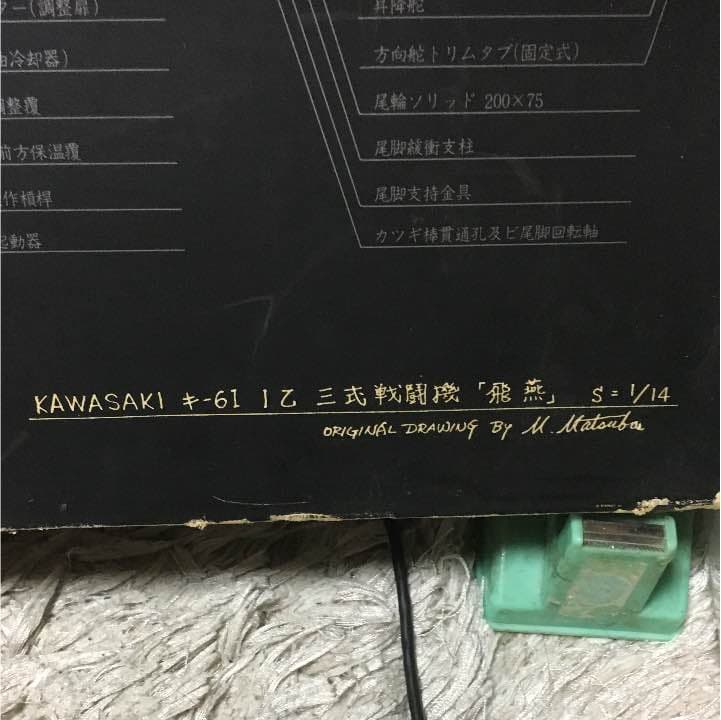 ター(調整扉)
油冷却器)
調整覆
前方保温覆
作槓桿
起動器
昇降舵
方向舵トリムタブ(固定式)
尾輪ソリッド 200×75
尾脚緩衝支柱
尾脚支持金具
カツギ棒貫通孔及ビ尾脚回転軸
KAWASAKI キ-61 I乙 三式戦闘機「飛燕」 S=1/14
ORIGINAL DRAWING BY M. Matsubara